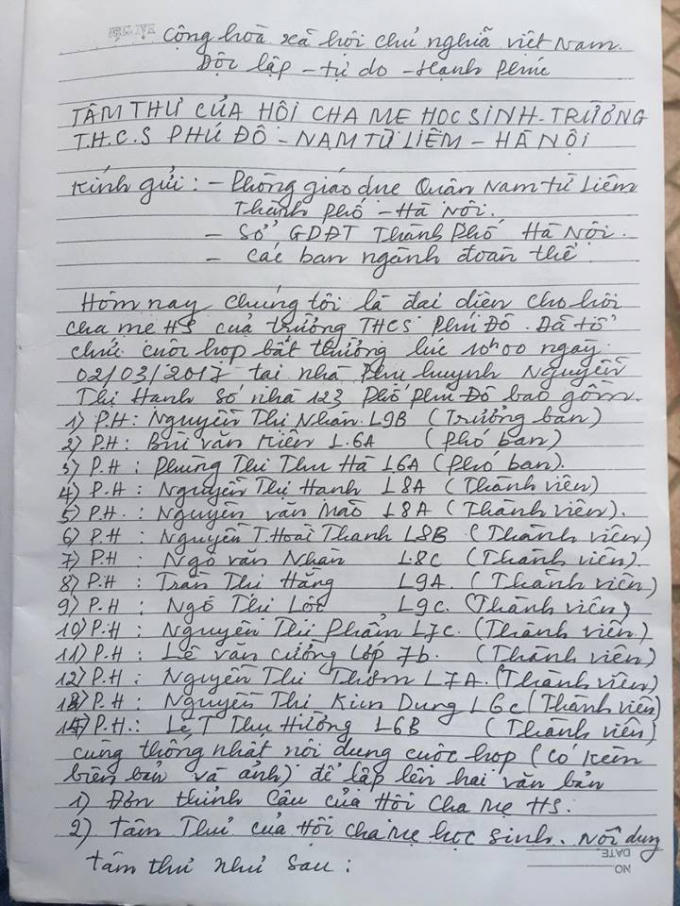 Cộng hòa xã hội chủ nghĩa việt Nam.
Độc lập - tự do - Hạnh phúc
TÂM THƯ CỦA HỘI CHA MẸ HỌC SINH - TRƯỜNG
T.H.C.S PHÚ ĐÔ - NAM TỪ LIÊM - HÀ NỘI
Kính gửi: - Phòng giáo dục Quận Nam từ Liêm
Thành phố - Hà Nội.
- Sở GDĐT Thành Phố Hà Nội.
- Các ban ngành đoàn thể.
Hôm nay chúng tôi là đại diện cho hội
cha mẹ HS của trường THCS Phú Đô. Đã tổ
chức cuộc họp bất thường lúc 10h00 ngày
02/03/2017 tại nhà Phụ huynh Nguyễn
Thị Hạnh Số nhà 123 Phố Phú Đô bao gồm.
1) P.H: Nguyễn Thị Nhàn. L9B (Trưởng ban)
2) P.H: Bùi văn Kiên L.6A (Phó ban)
3) P.H: Phùng Thị Thu Hà L6A (Phó ban).
4) P.H: Nguyễn Thị Hạnh L8A (Thành viên)
5) P.H: Nguyễn văn Mão L8A (Thành viên).
6) P.H: Nguyễn T.Hoài Thanh L8B (Thành viên)
7) P.H: Ngô văn Nhàn L.8C (Thành viên).
8) P.H: Trần Thị Hằng L9A. (Thành viên)
9) P.H: Ngô Thị Lộc L9C. (Thành viên)
10) P.H: Nguyễn Thị Phẩm L7C. (Thành viên)
11) P.H: Lê văn Cường Lớp 7b. (Thành viên)
12) P.H: Nguyễn Thị Thơm L7A. (Thành viên)
13) P.H: Nguyễn Thị Kim Dung L6C (Thành viên)
14) P.H.: Lê T Thu Hường L6B (Thành viên)
cùng thống nhất nội dung cuộc họp (có kèm
biên bản và ảnh) để lập lên hai văn bản
1) Đơn thỉnh Cầu của Hội Cha Mẹ HS.
2) Tâm Thư của Hội cha mẹ học sinh. Nội dung
tâm thư như sau:
DATE
NO